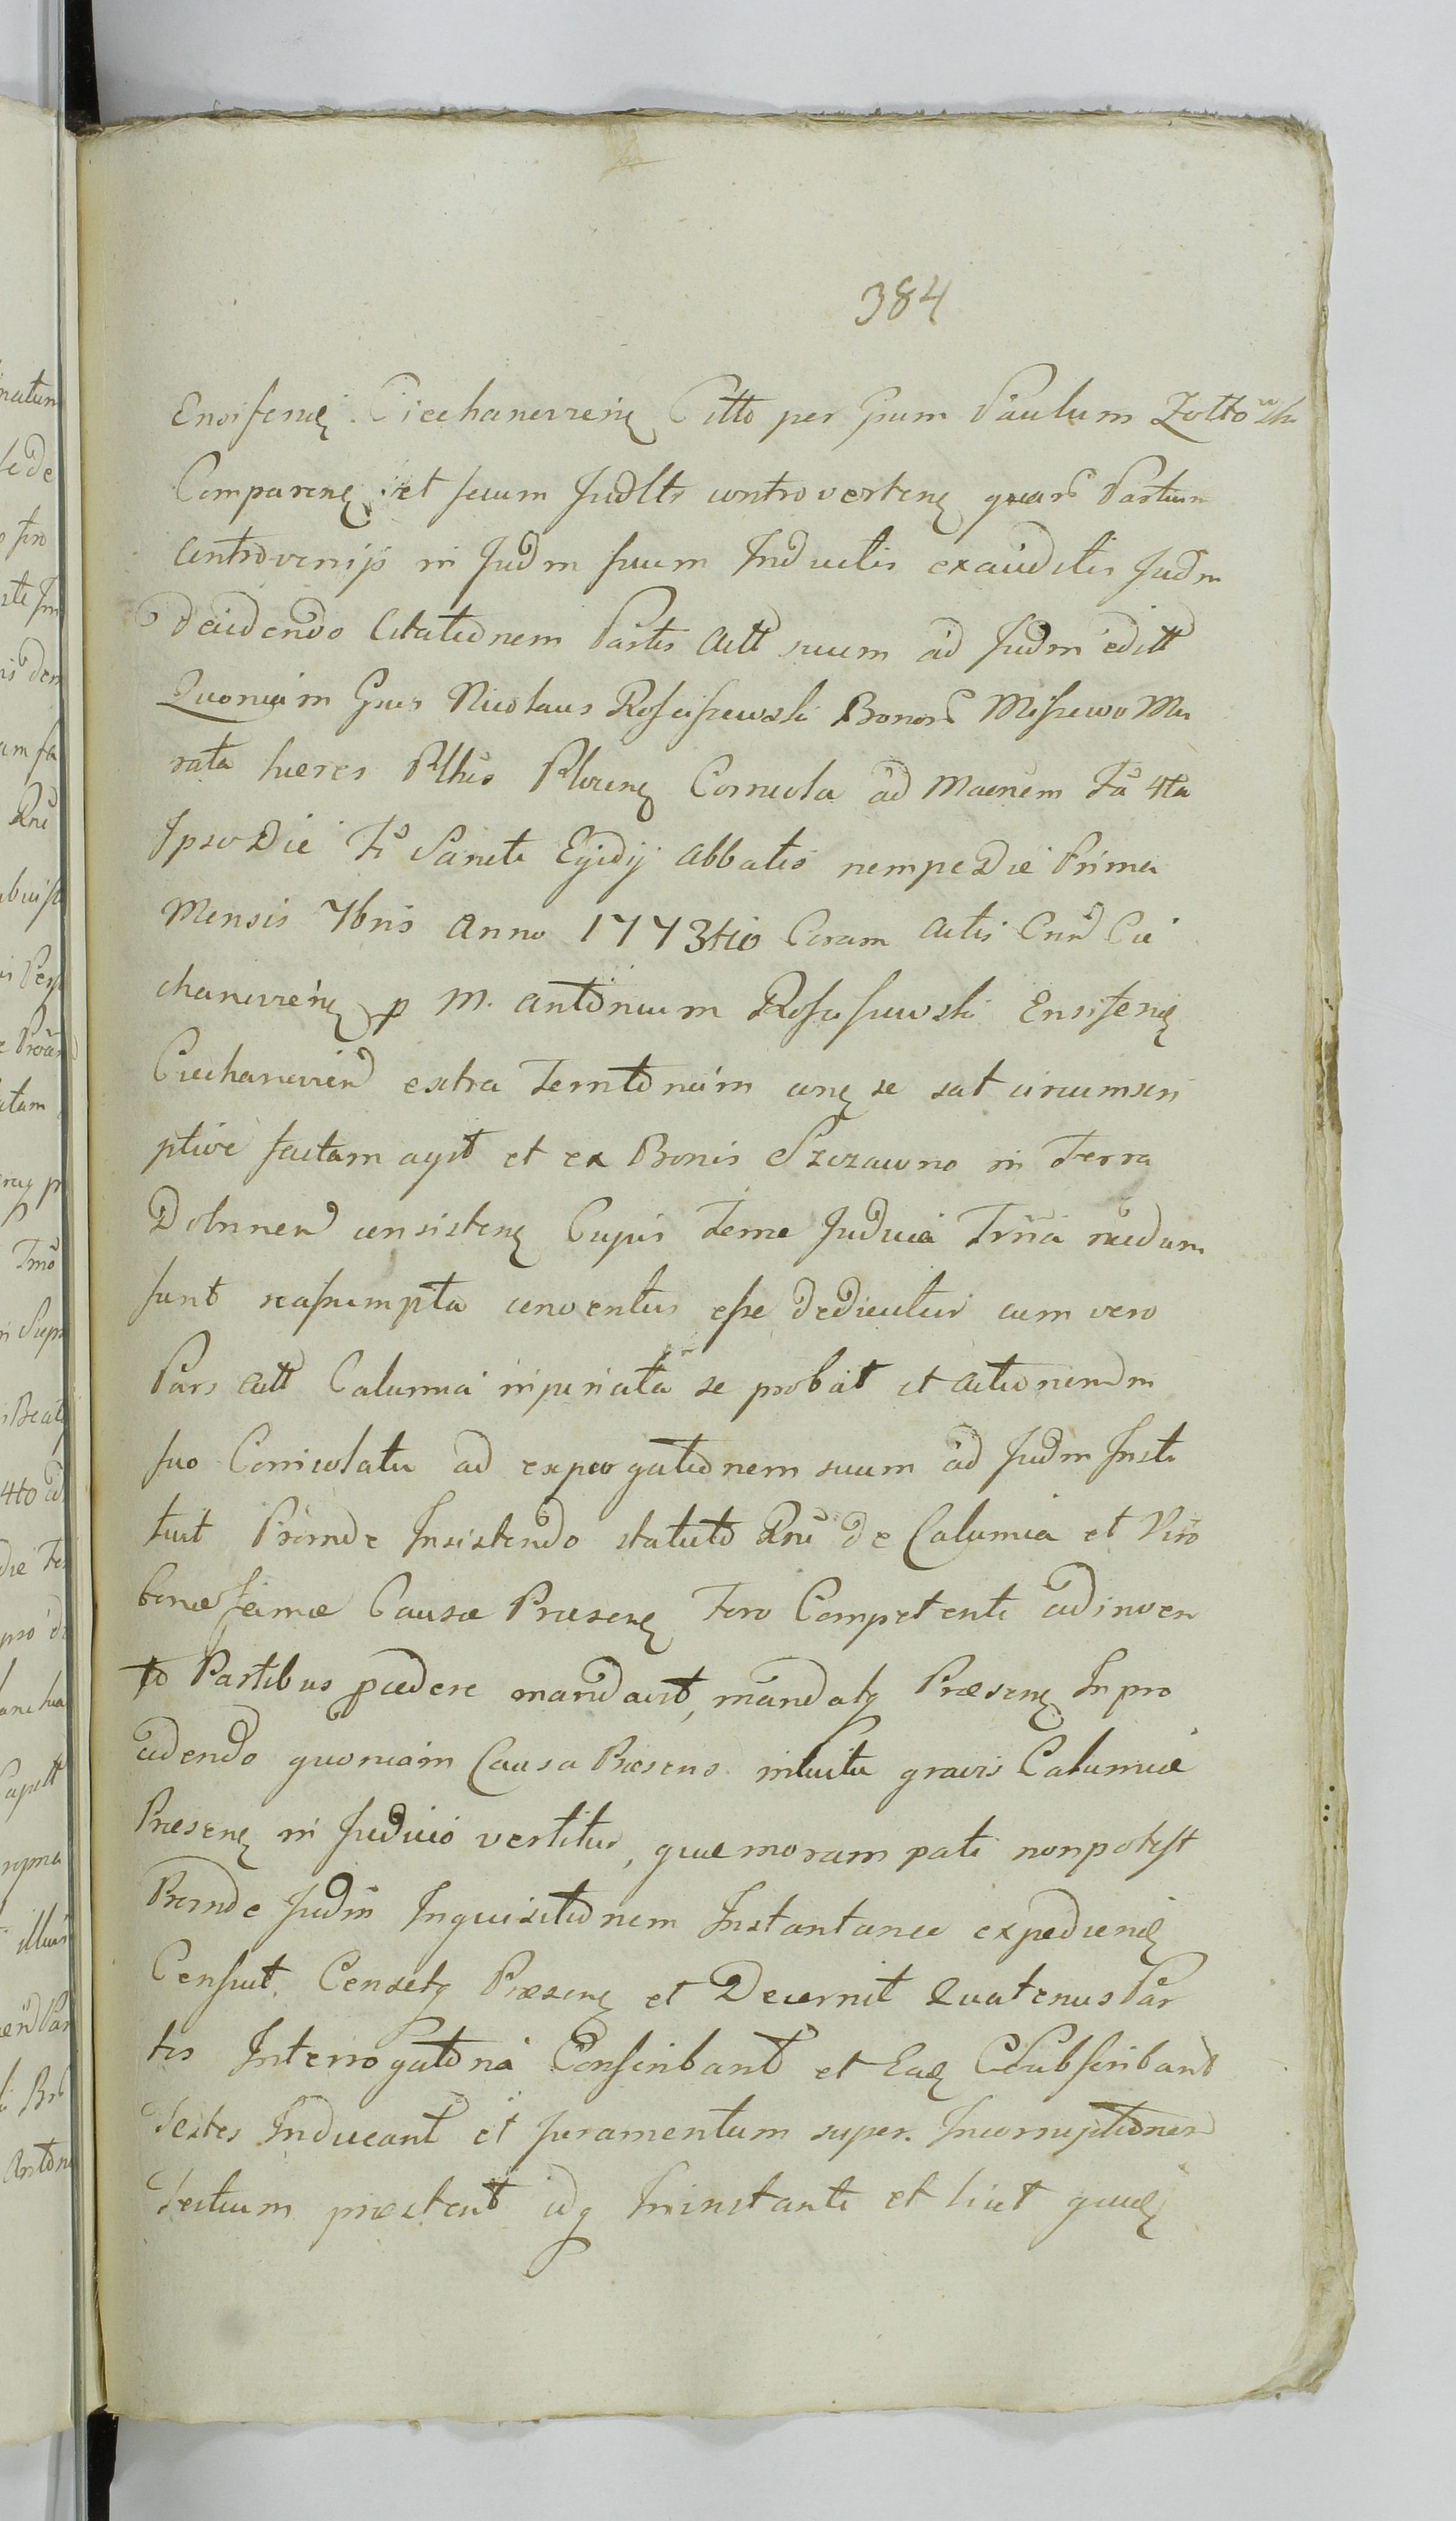 384
Ensiferuę Ciechanovienę Citto per Gnum Paulum Zołtowski
Comparenę et secum Judltr controvertenę quar Partium
Controversijs in Judm suum Inductis exauditis Judm
Decidendo Citationem Partis Act suum ad Judm edit
Quoniam Gnus Nicolaus Rosciszewski Bonor Miszewo Mu
rata haeres Plhis Plocenę Cornicula ad Maenem Fa 4ta
Ipso Die Fi Sancti Egidij Abbatis nempe Die Prima
Mensis 7bris Anno 1773tio Coram Actis Cnn Cie
chanovienę p M. Antonium Rosciszewski Ensiferuę
Ciechanovien extra Territorium cunę se sat circumscri
ptive factam agit et ex Bonis Szczawno in Terra
Dobrinen consistenę Cujus Terrae Judicia Trnia necdum
sunt reassumpta conventus esse dedicitur cum vero
Pars Act Calumnia injuriata se probat et Actionemdm
suo Coniculatu ad expurgationem suum ad Judm Insti
tuit Proinde Insistendo statuto Rni de Calumnia et Viro
bonae famae Causae Praesenę Foro Competenti adinven
to Partibus procedere mandavit, mandatq Praesenę In pro
cedendo quoniam Causa Praesens intuitu gravis Calumniae
Praesenę in Judicio vertitur, quae moram pati non potest
Proinde Judm Inquisitionem Instantanee expedienę
Censuit Censetq Praesenę et Decernit Quatenus Par
tes Interrogatoria Conscribant et Eaę Subscribant
Testes Inducant et Juramentum super Incorruptionem
Testium praestent idq In instanti et licet quidę